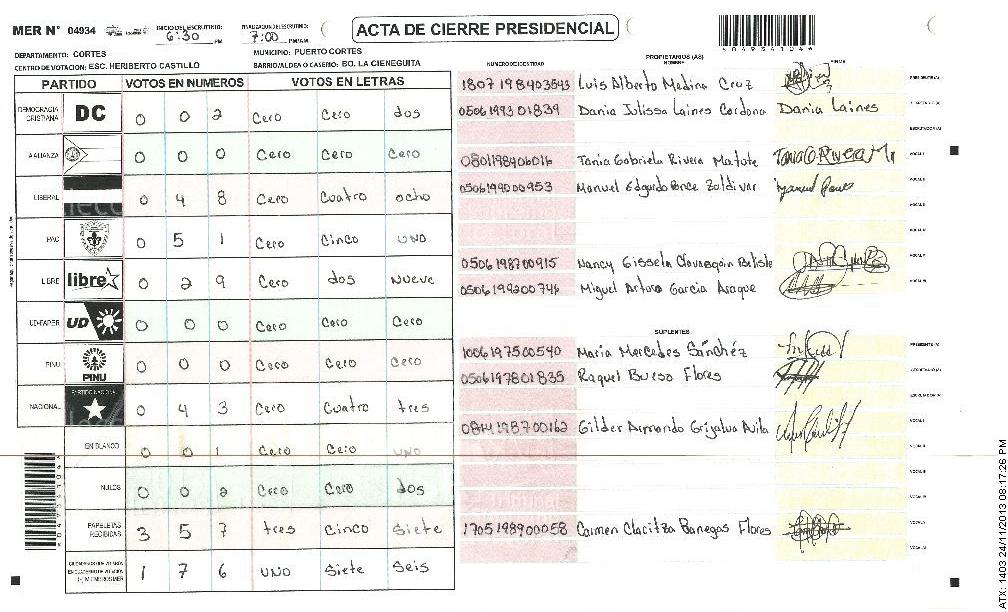 MER N° 04934
INICIO DEL ESCRUTINIO: 6:30 PM
FINALIZACION DEL ESCRUTINIO: 7:00 PM/AM
ACTA DE CIERRE PRESIDENCIAL
DEPARTAMENTO: CORTES
MUNICIPIO: PUERTO CORTES
CENTRO DE VOTACION: ESC. HERIBERTO CASTILLO
BARRIO/ALDEA O CASERIO: BO. LA CIENEGUITA
PARTIDO VOTOS EN NUMEROS VOTOS EN LETRAS
DEMOCRACIA CRISTIANA DC 0 0 2 Cero Cero dos
A ALIANZA 0 0 0 Cero Cero Cero
LIBERAL 0 4 8 Cero Cuatro ocho
PAC 0 5 1 Cero Cinco UNO
LIBRE libre 0 2 9 Cero dos Nueve
UD-FAPER UD 0 0 0 Cero Cero Cero
PINU PINU 0 0 0 Cero Cero Cero
NACIONAL PARTIDO NACIONAL 0 4 3 Cero Cuatro tres
EN BLANCO 0 0 1 Cero Cero UNO
NULOS 0 0 2 Cero Cero dos
PAPELETAS RECIBIDAS 3 5 7 tres Cinco Siete
1 7 6 UNO Siete Seis
NUMERO DE IDENTIDAD
PROPIETARIOS (AS)
NOMBRE
FIRMA
1807198403543 Luis Alberto Medina Cruz PRESIDENTE (A)
0506199301839 Dania Julissa Laines Cardona Dania Laines
ESCRUTADOR (A)
0801198406016 Tania Gabriela Rivera Matute Tania G Rivera M VOCAL I
0506199000953 Manuel Edgardo Ponce Zaldivar Manuel Ponce VOCAL II
0506198700915 Nancy Gissela
0506199200746 Miguel Arturo Garcia Araque
SUPLENTES
1006197500540 Maria Mercedes Sánchez PRESIDENTE (A)
0506197801835 Raquel Bueso Flores SECRETARIO (A)
ESCRUTADOR (A)
Gilder Armando Grijalva Avila VOCAL I
1705198900058 Carmen Claritza Banegas Flores
ATX: 1403 24/11/2013 08:17:26 PM